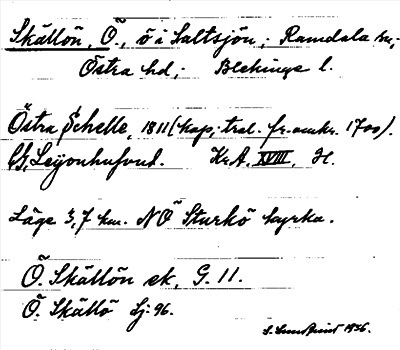 Skällön, Ö., ö i Saltsjön; Ramdala sn;
Östra hd; Blekinge l.
Östra Schelle, 1811 (kop; trol. fr. omkr. 1700).
G. Leijonhufvud. Kr.A. XVIII, H.
Läge 3,7 km. NÖ Sturkö kyrka.
Ö. Skällön ek, G. 11.
Ö. Skällö Sj: 96.
1936.